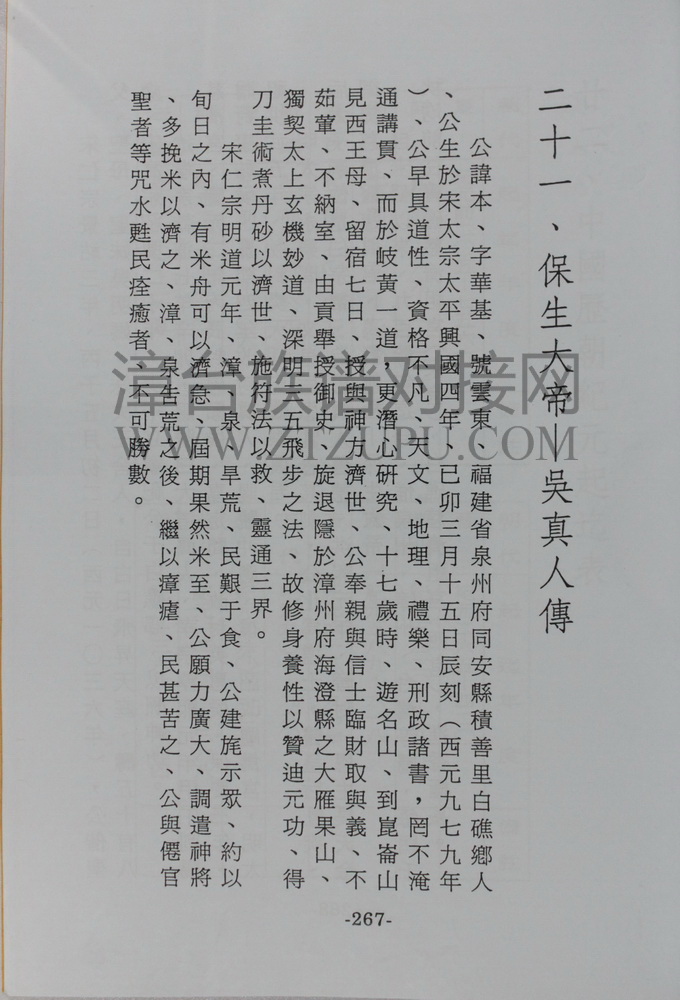 二十一、保生大帝—吳真人傳
公諱本、字華基、號雲東、福建省泉州府同安縣積善里白礁鄉人
、公生於宋太宗太平興國四年、已卯三月十五日辰刻（西元九七九年
）、公早具道性、資格不凡、天文、地理、禮樂、刑政諸書，罔不淹
通講貫、而於岐黃一道，更潛心研究、十七歲時、遊名山、到崑崙山
見西王母、留宿七日、授與神方濟世、公奉親與信士臨財取與義、不
茹葷、不納室、由貢舉授御史、旋退隱於漳州府海澄縣之大雁果山、
獨契太上玄機玅道、深明三五飛步之法、故修身養性以贊迪元功、得
刀圭術煮丹砂以濟世、施符法以救、靈通三界。
宋仁宗明道元年、漳、泉、旱荒、民艱于食、公建旄示眾、約以
旬日之內、有米舟可以濟急、屆期果然米至、公願力廣大、調遣神將
、多挽米以濟之、漳、泉告荒之後、繼以瘴瘧、民甚苦之、公與僊官
聖者等咒水甦民痊癒者、不可勝數。
漳台族谱对接网
WWW.ZTZUPU.COM
-267-